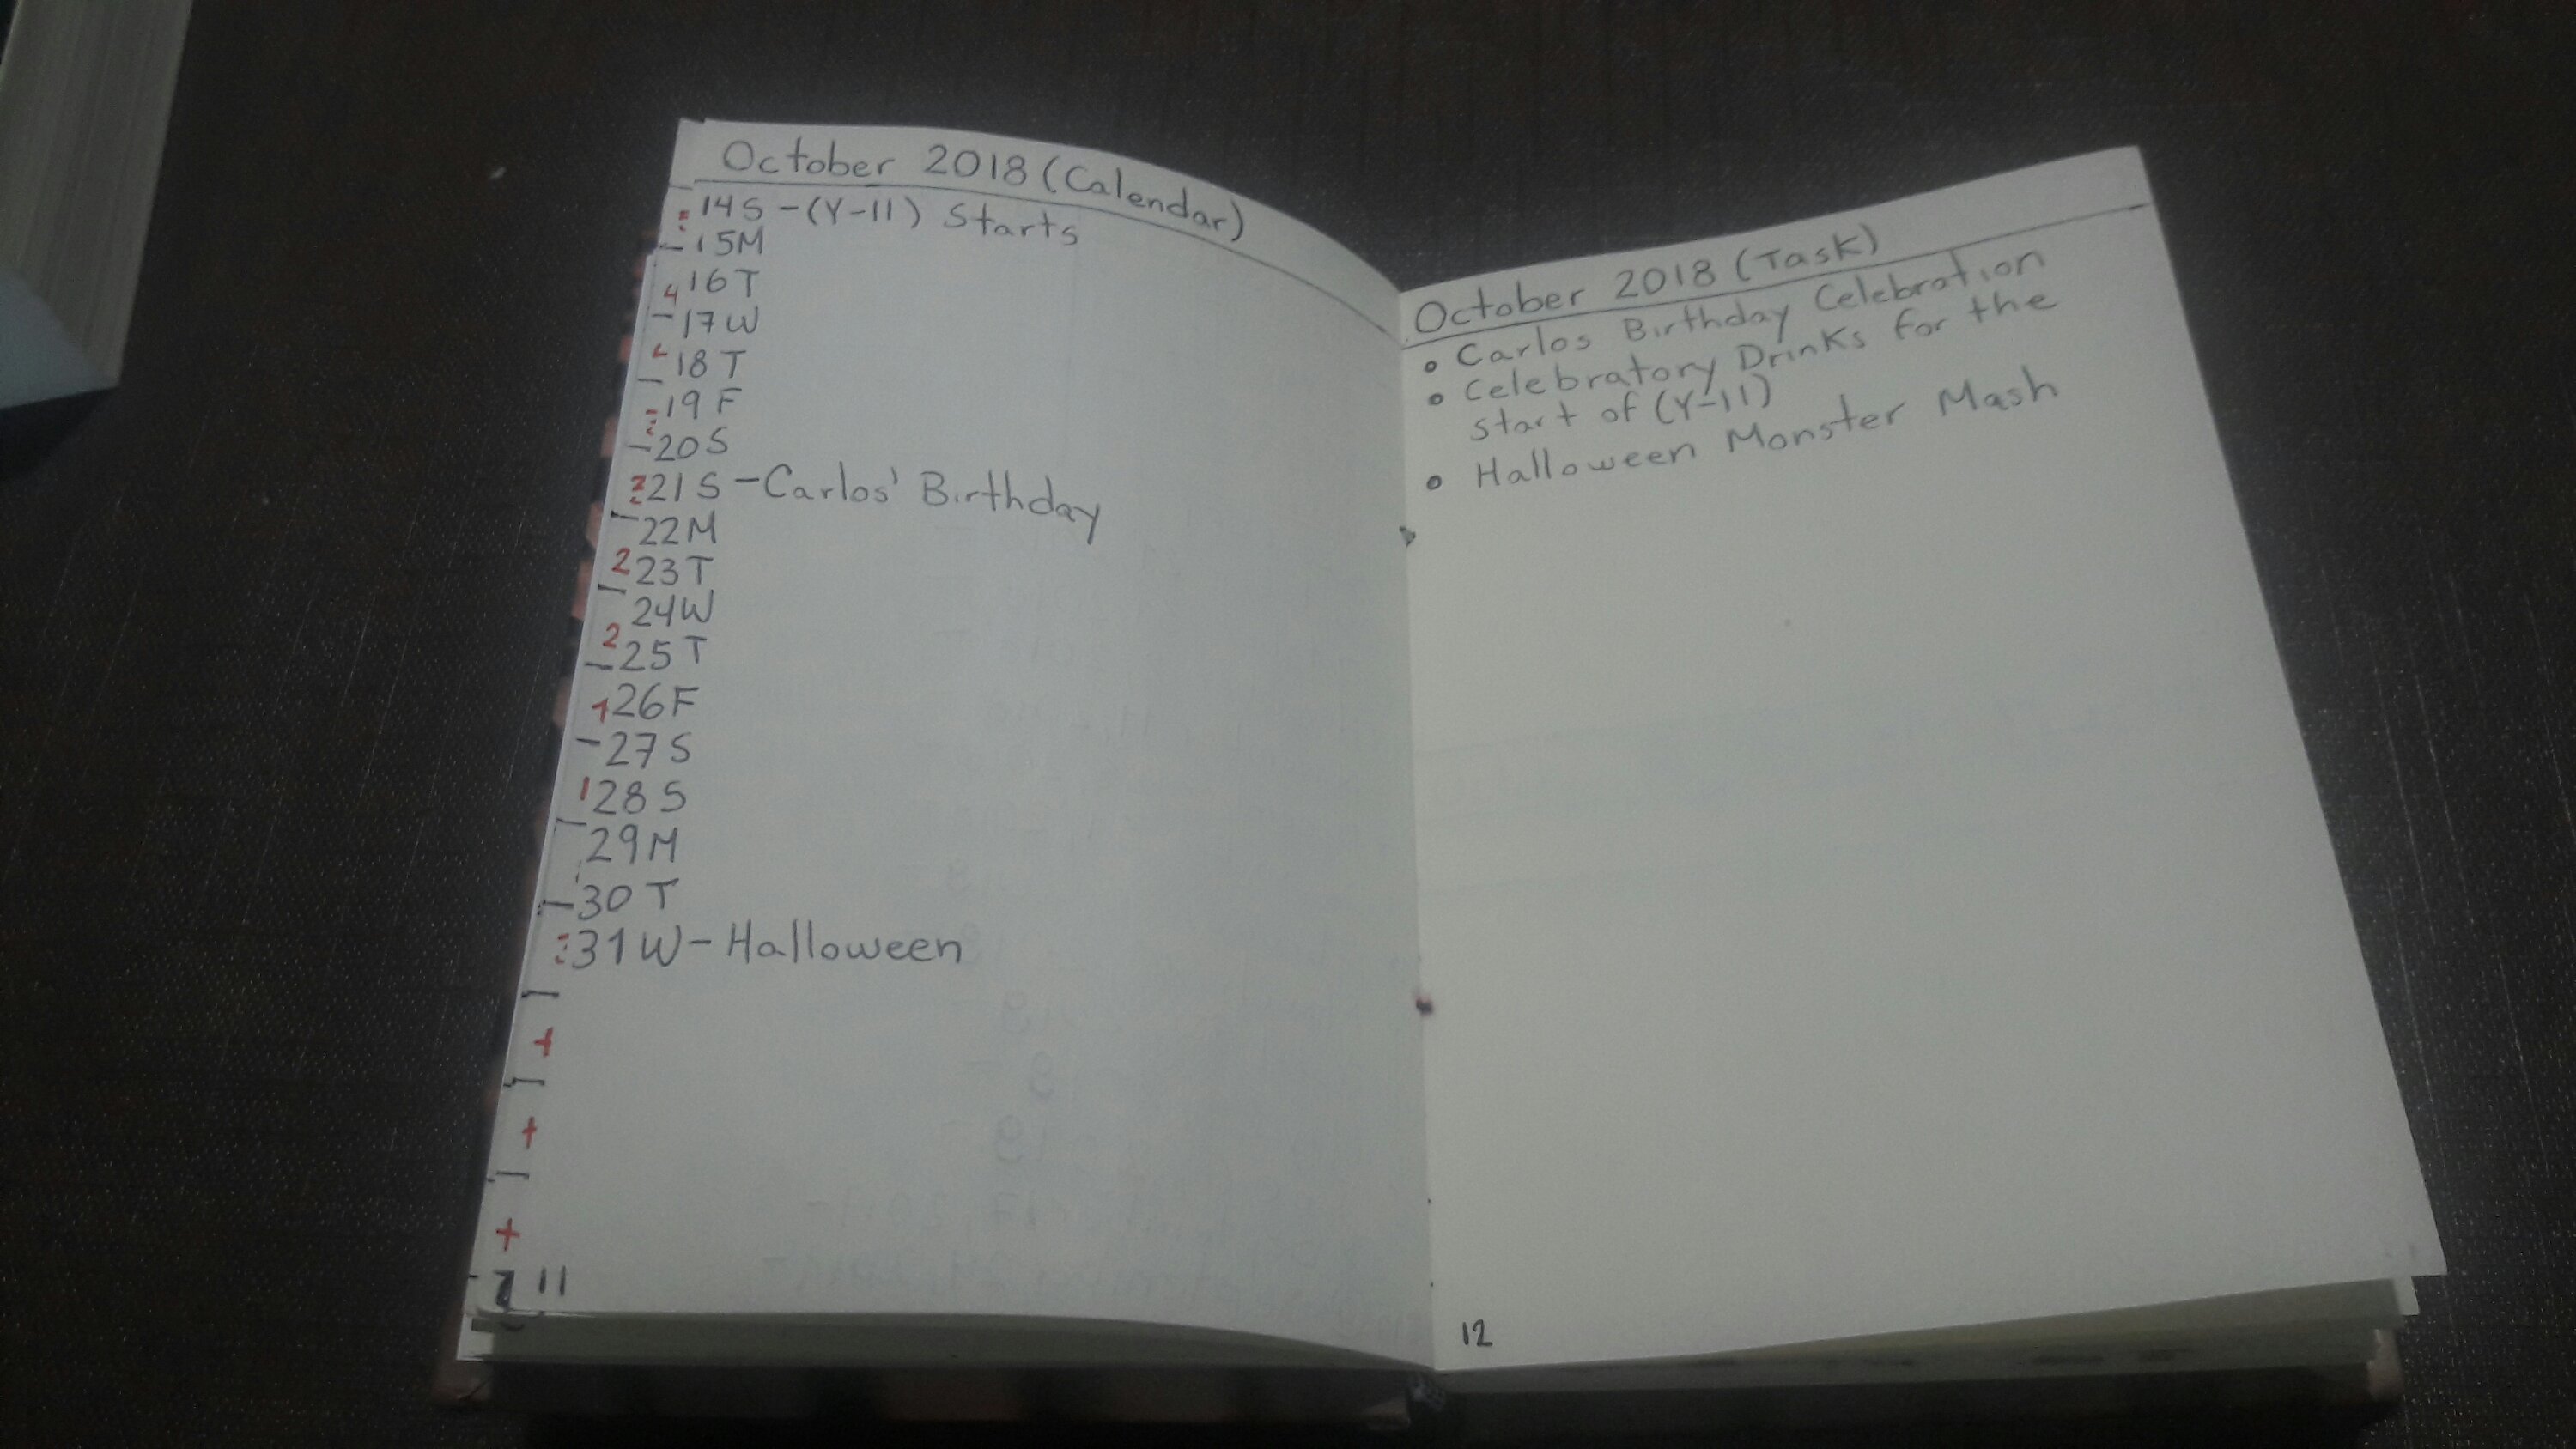 October 2018 (Calendar)
14S - (Y-11) Starts
15M
16T
17W
18T
19F
20S
21S - Carlos' Birthday
22M
23T
24W
25T
26F
27S
28S
29M
30T
31W - Halloween
11
October 2018 (Task)
• Carlos Birthday Celebration
• Celebratory Drinks for the
start of (Y-11)
• Halloween Monster Mash
12